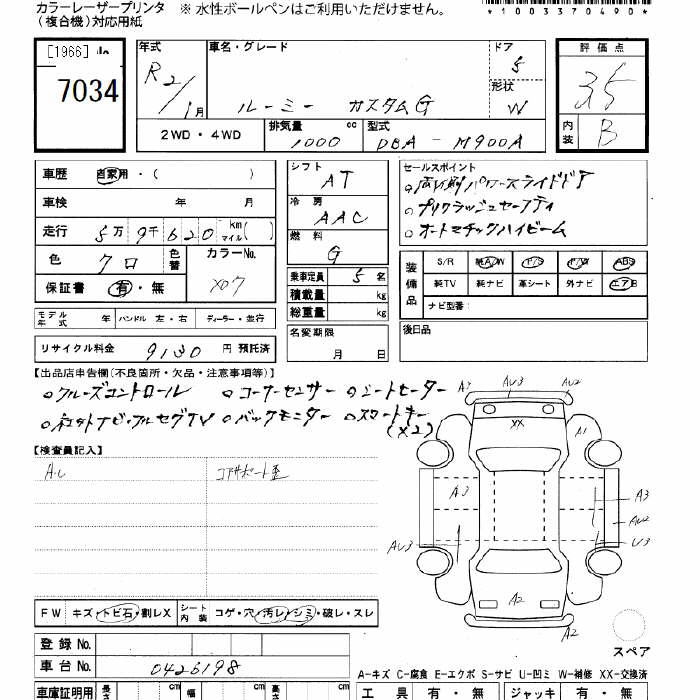 カラーレーザープリンタ ※ 水性ボールペンはご利用いただけません。
(複合機)対応用紙
*1003370490*
[1966]
7034
年式 R2/1月
車名・グレード ルーミー カスタムG
ドア 5
形状 W
評価点 3.5
内装 B
2WD・4WD 排気量 1000 cc 型式 DBA - M900A
車歴 自家用・( )
車検 年 月
走行 5万9千620 km マイル( )
色 クロ 色替 カラーNo. X07
保証書 有・無
モデル年式 年 ハンドル 左・右 ディーラー・並行
リサイクル料金 9130 円 預託済
シフト AT
冷房 AAC
燃料 G
乗車定員 5 名
積載量 kg
総重量 kg
名変期限 月 日
セールスポイント
○両側パワースライドドア
○プリクラッシュセーフティ
○オートマチックハイビーム
装備品 S/R 純A/W P/S P/W ABS
純TV 純ナビ 革シート 外ナビ エアB
ナビ型番:
後日品
【出品店申告欄(不良箇所・欠品・注意事項等)】
○クルーズコントロール ○コーナーセンサー ○シートヒーター
○ネットナビ・フルセグTV ○バックモニター ○スマートキー
(×2)
【検査員記入】
コアサポート歪
AU3 AU2
XX A1
A3 A3
AU2
AU3 U3
A2
A2
スペア
FW キズ・トビ石・割レX シート内装 コゲ・穴・汚レ・シミ・破レ・スレ
登録 No.
車台 No. 0426198
A-キズ C-腐食 E-エクボ S-サビ U-凹ミ W-補修 XX-交換済
車庫証明用 長さ cm 幅 cm 高さ cm
工具 有・無 ジャッキ 有・無